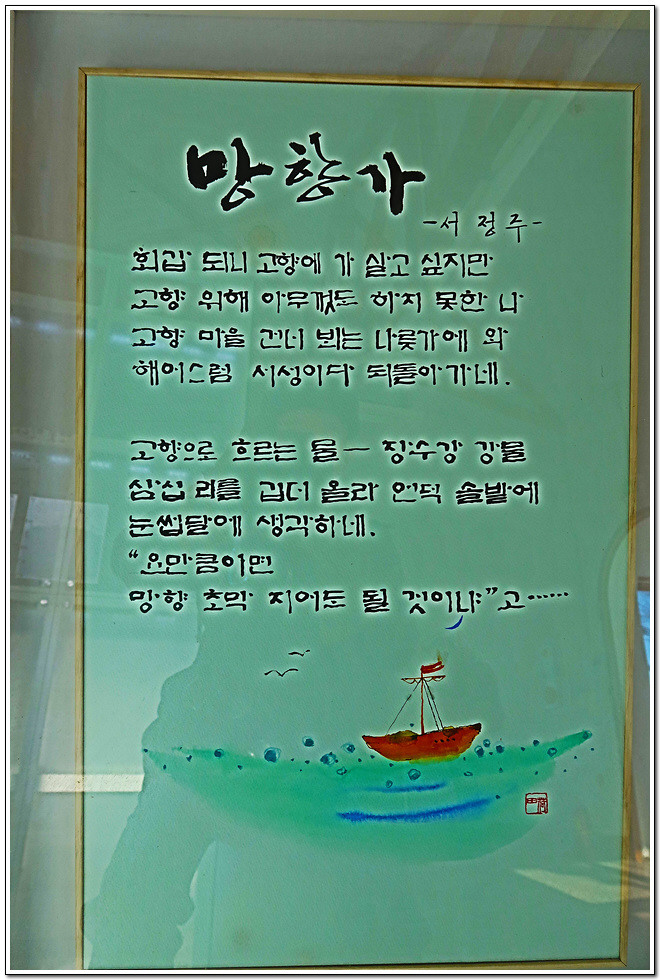 망향가
-서정주-
회갑 되니 고향에 가 살고 싶지만
고향 위해 아무껏도 하지 못한 나
고향 마을 건너 뵈는 나룻가에 와
해어스럼 서성이다 되돌아가네.
고향으로 흐르는 물— 장수강 강물
삼십 리를 깁더 올라 언덕 솔밭에
눈썹달에 생각하네.
“요만큼이면
망향 초막 지어도 될 것이냐”고……